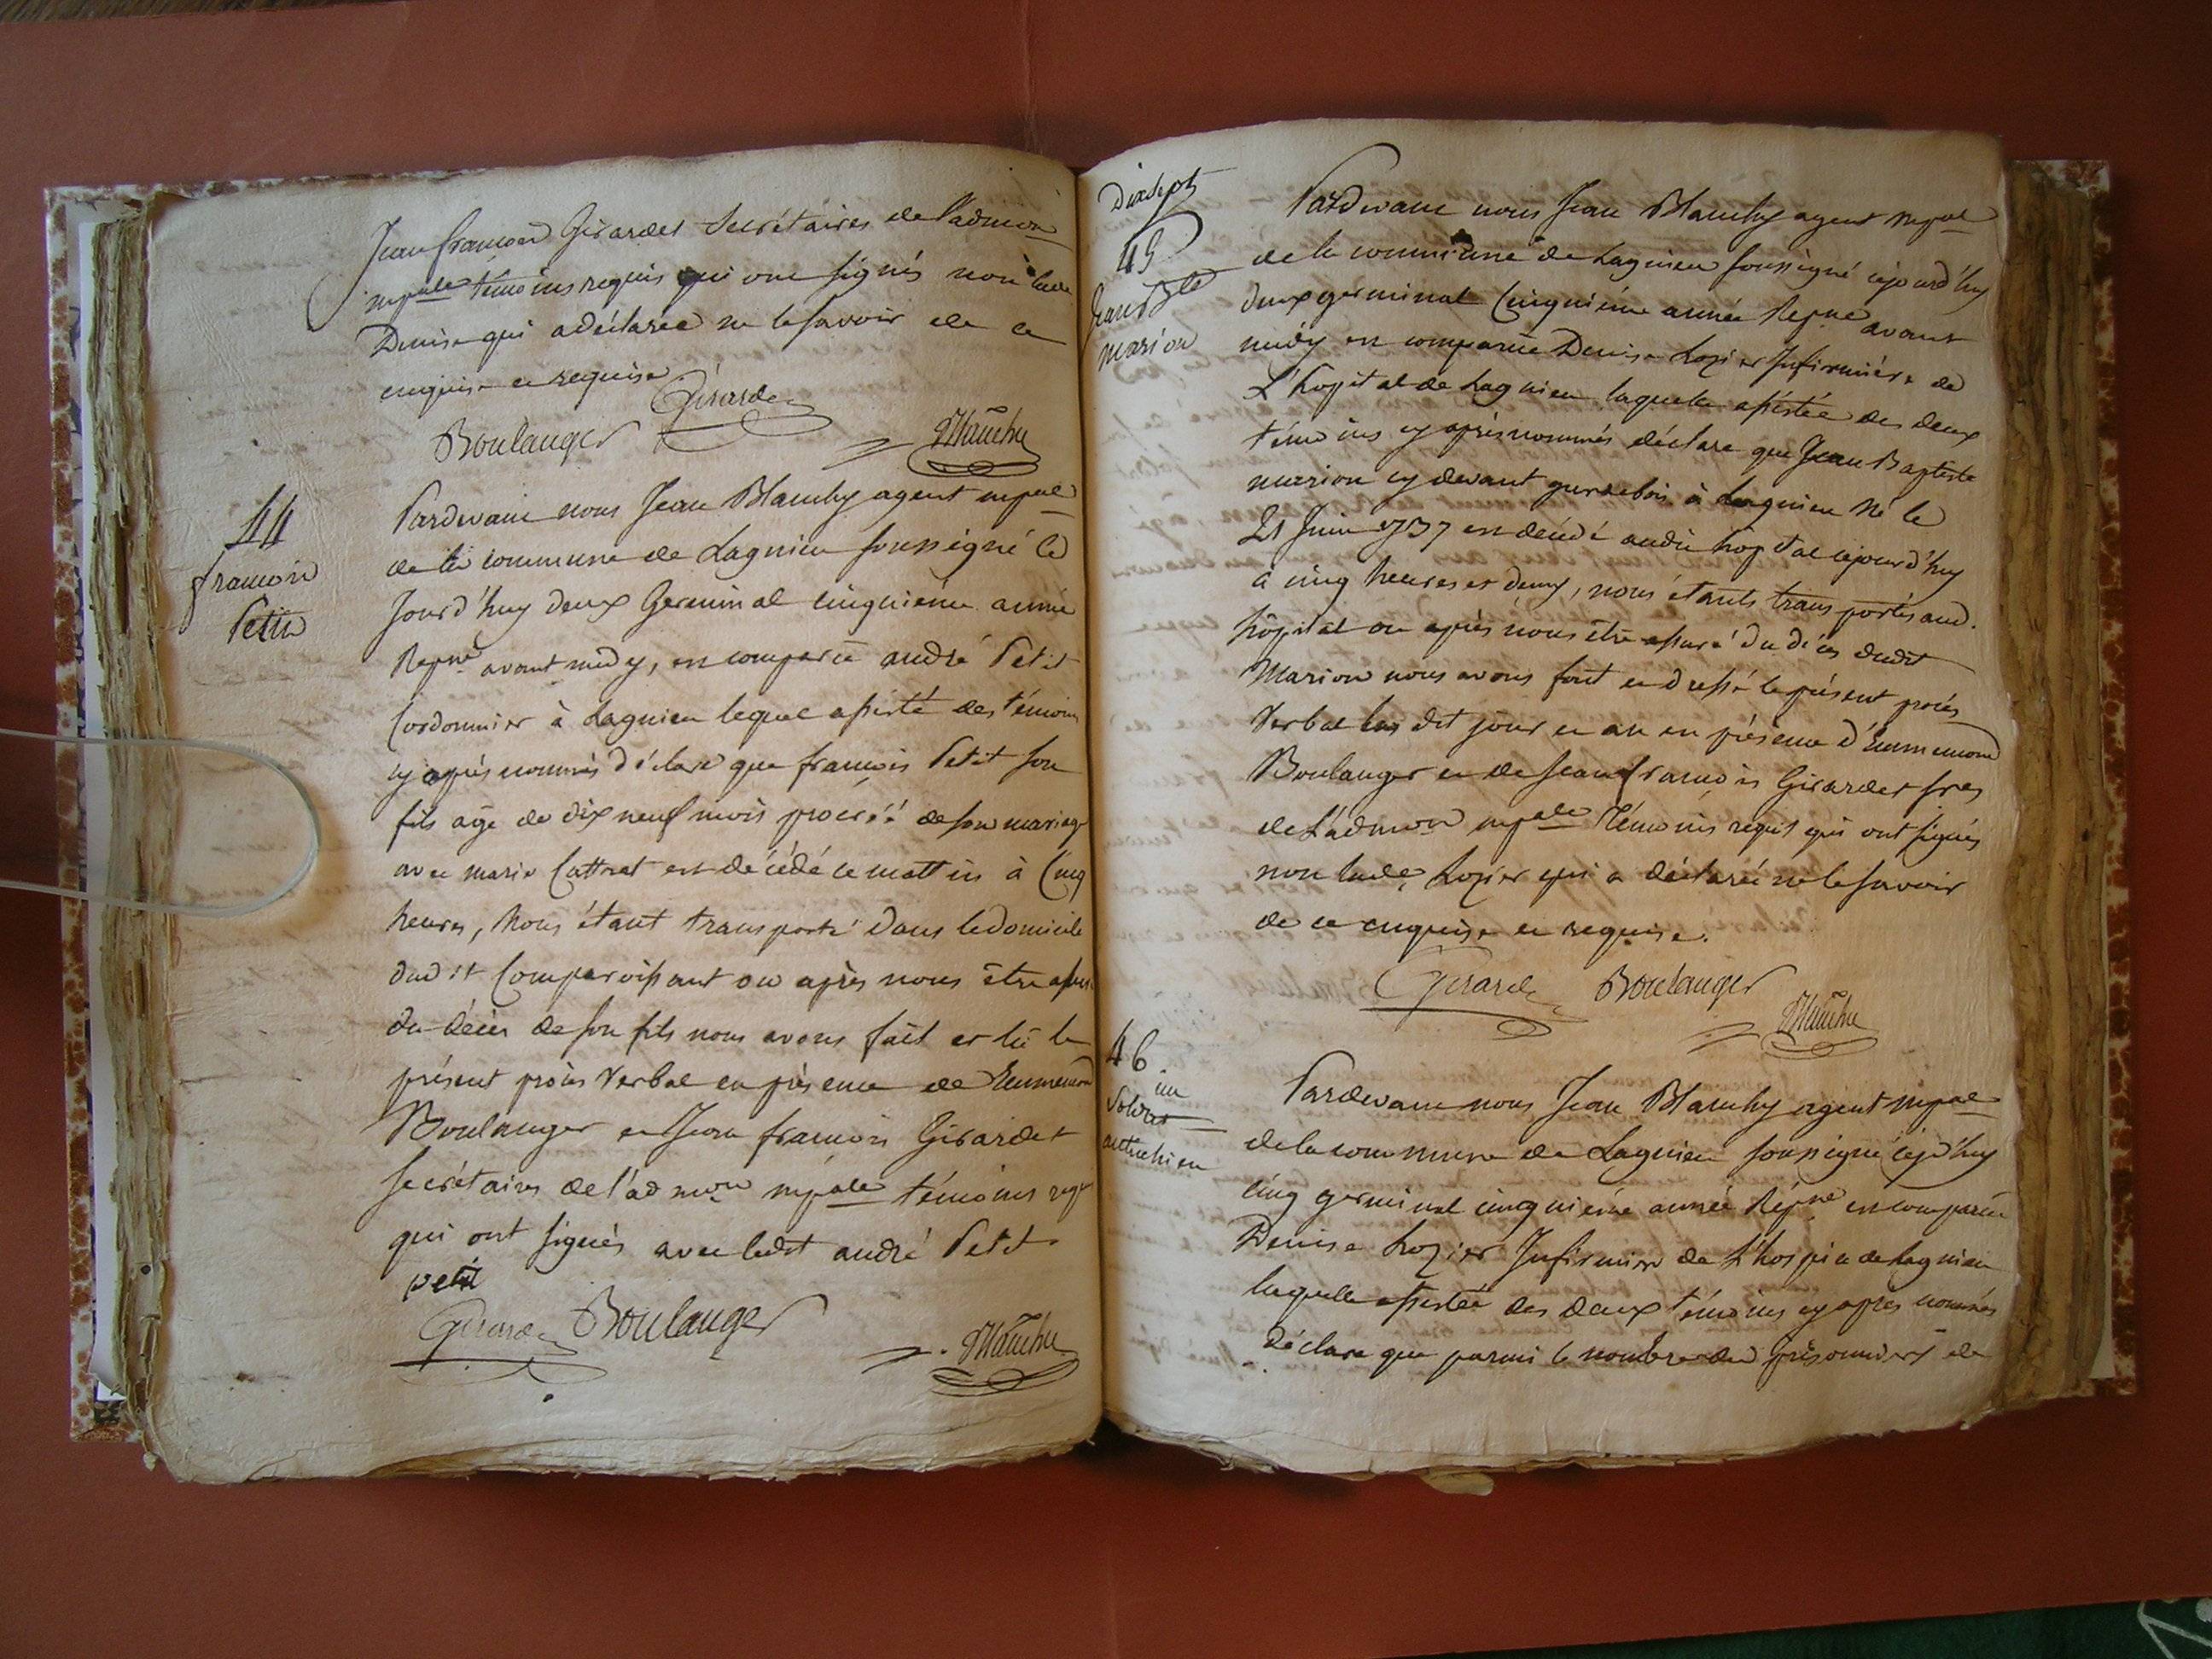 Jean françois Girardet Secrétaires de l'admon
mpale témoins requis qui ont signés non lade
Denise qui a déclarée ne le savoir de ce
enquise et requise
Girardet
Boulanger
Blanchy
44
françois
Petit
Pardevant nous Jean Blanchy agent mpal
de la commune de Lagnieu soussigné ce
jourd'huy deux Germinal cinquième année
Repne avant midy, est comparu andré Petit
Cordonnier à Lagnieu lequel assisté des témoins
cy après nommés déclare que françois Petit son
fils agé de dix neuf mois procréé de son mariage
avec marie Cattret est décédé ce mattin à Cinq
heures, Nous étant transporté dans le domicile
dudit Comparoissant ou après nous être assuré
du décès de son fils nous avons fait et lu le
présent procès Verbal en présence de Ennemond
Boulanger et Jean françois Girardet
secrétaires de l'admon mpale témoins requis
qui ont signés avec ledit andré Petit
petit
Girardet Boulanger
Blanchy
Dixsept
45
Jean Bte
marion
Pardevant nous Jean Blanchy agent mpal
de la commune de Lagnieu soussigné cejourd'huy
deux germinal Cinquième année Repne avant
midy est comparüe Denise Lozier Infirmière de
L'hopital de Lagnieu laquelle assistée des deux
témoins cy après nommés déclare que Jean Baptiste
marion cy devant gardebois à Lagnieu Né le
21 Juin 1737 est décédé audit hopital cejourd'huy
à cinq heures et demy, nous étants transportés aud.
hôpital ou après nous être assuré du décès dudit
Marion nous avons fait et dressé le présent procès
Verbal les dit jour et an en présence d'Ennemond
Boulanger et de Jean françois Girardet sres
de L'admon mpale Témoins requis qui ont signés
non lade Lozier qui a déclarée ne le savoir
de ce enquise et requise.
Girardet Boulanger
Blanchy
46
un
Soldat
auttrichien
Pardevant nous Jean Blanchy agent mpal
de la commune de Lagnieu soussigné cejd'huy
cinq germinal cinquième année Répne est comparüe
Denise Lozier Infirmière de L'hospice de Lagnieu
laquelle assistée des deux témoins cy après nommés
déclare que parmi le nombre des prisonniers de